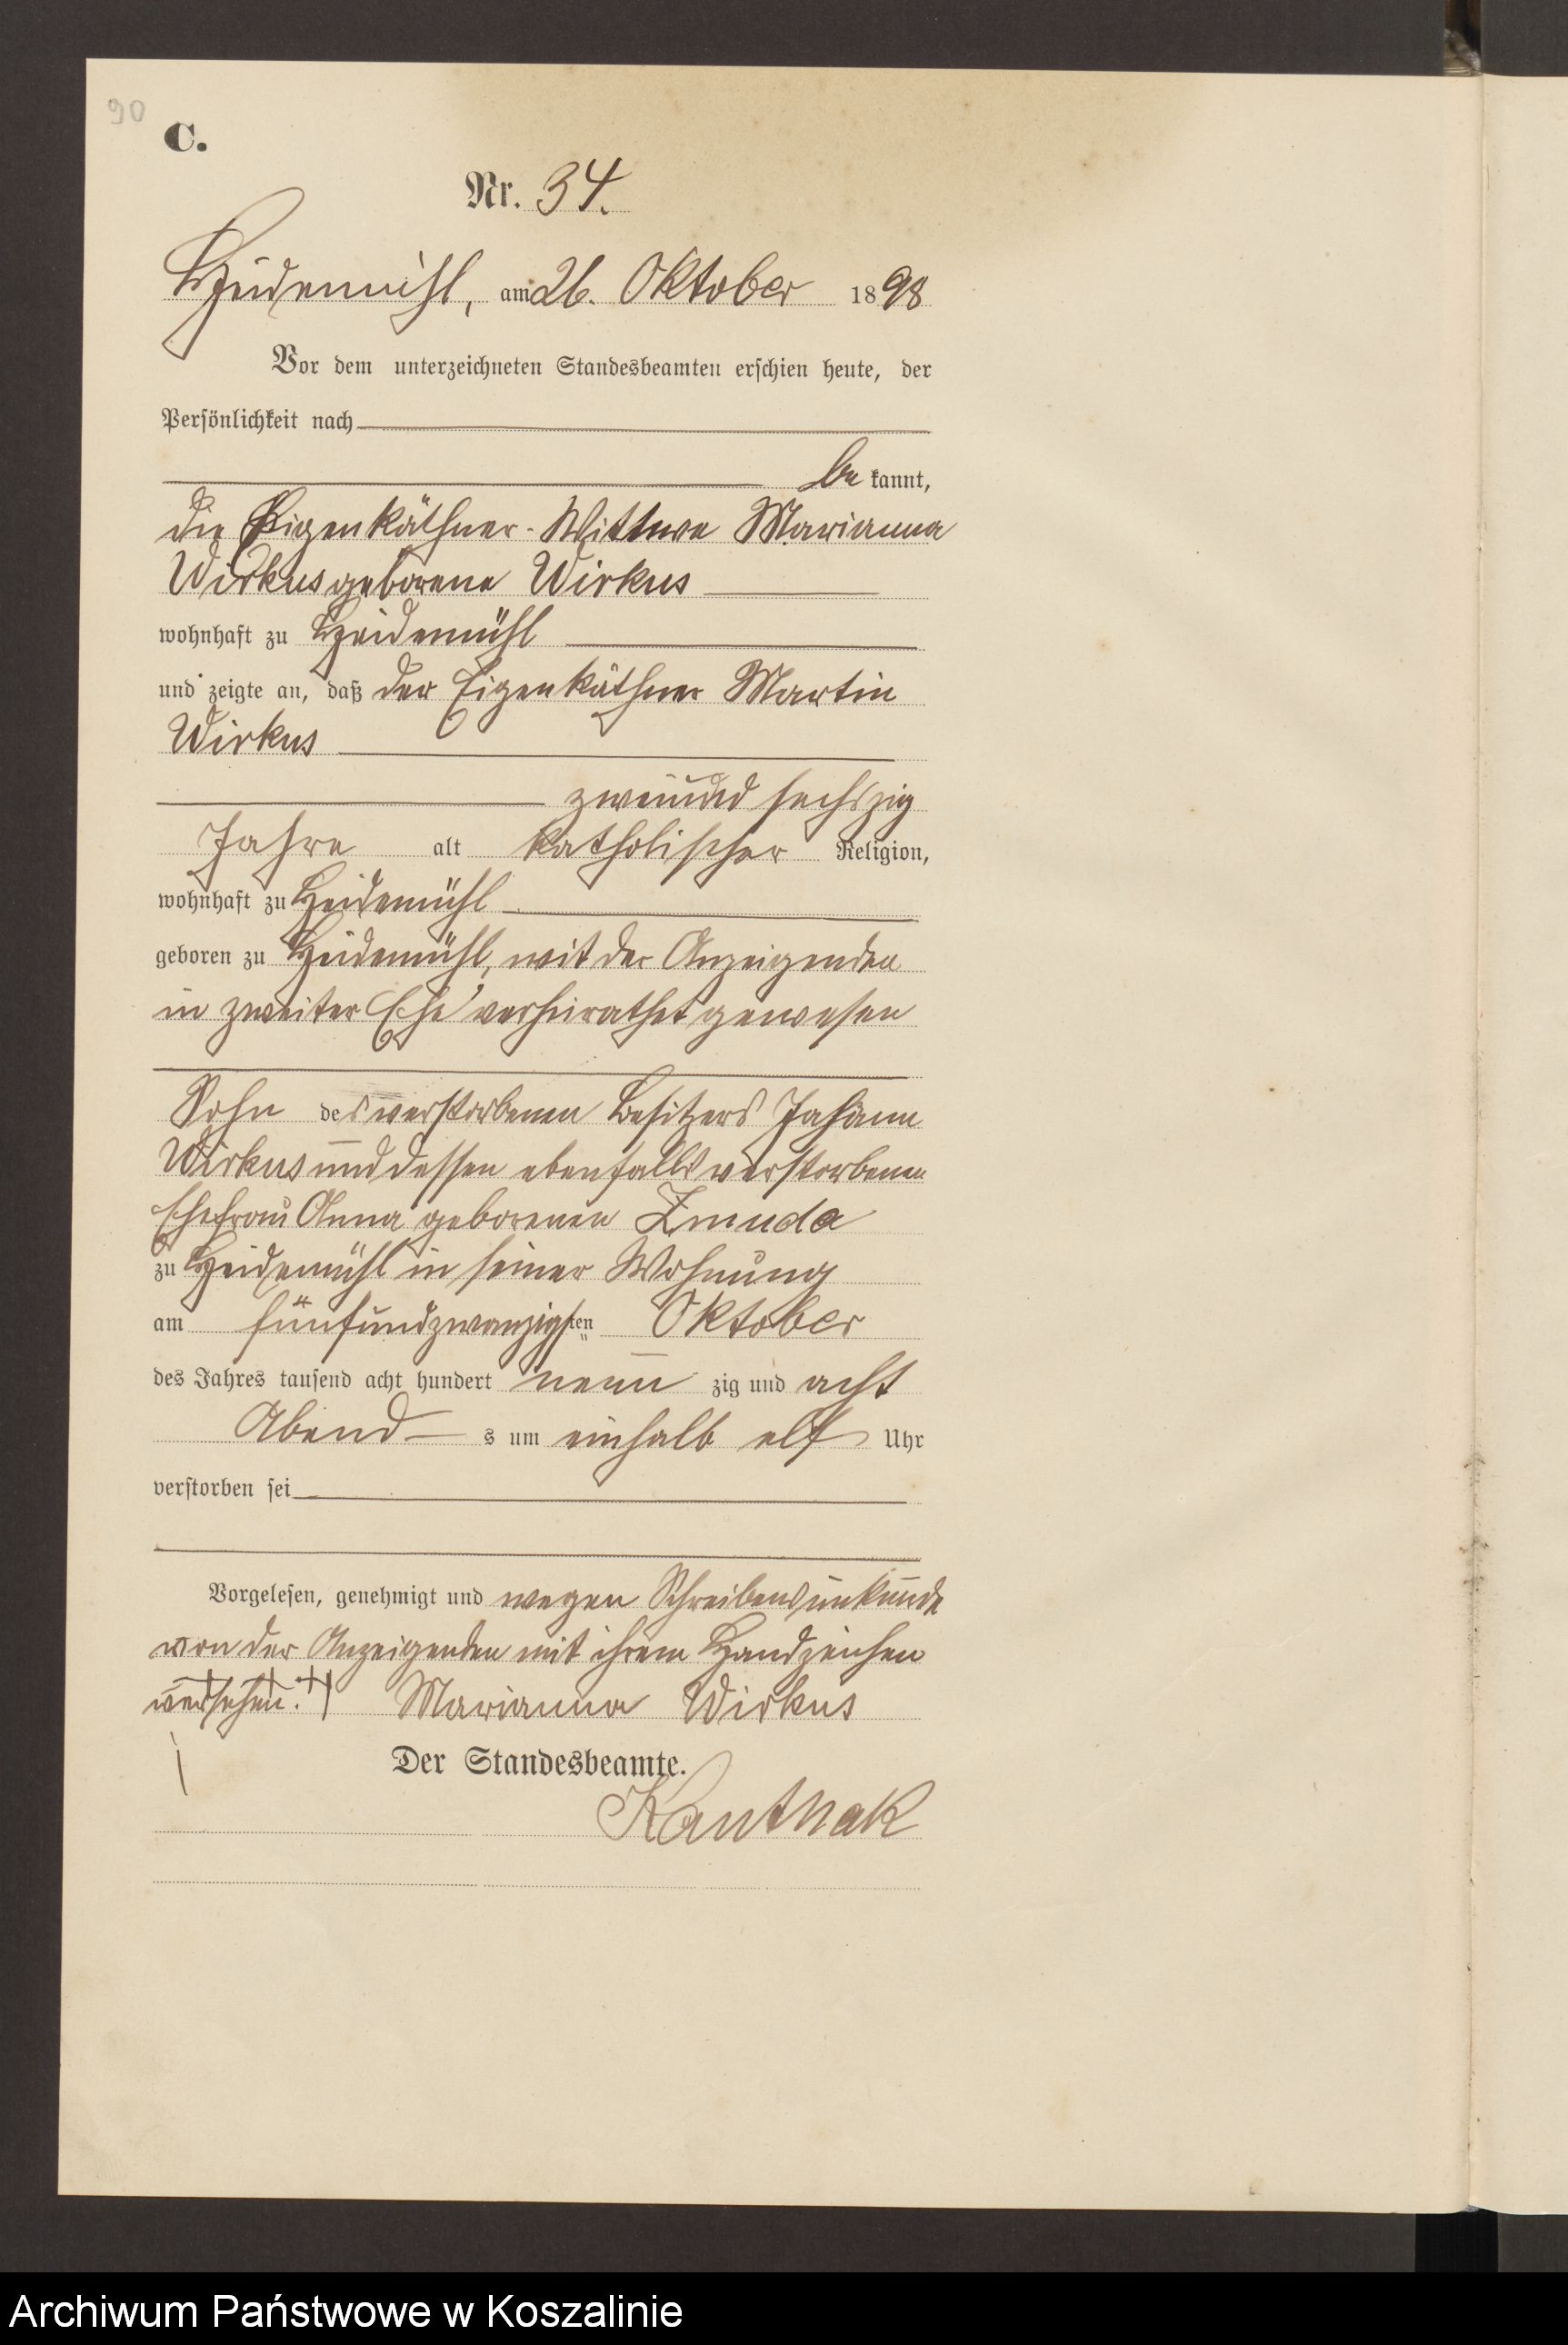 90
C.
Nr. 34.
Heidemühl, am 26. Oktober 1898
Vor dem unterzeichneten Standesbeamten erschien heute, der
Persönlichkeit nach
be kannt,
die Eigenkäthner-Wittwe Marianna
Wirkus geborene Wirkus
wohnhaft zu Heidemühl
und zeigte an, daß der Eigenkäthner Martin
Wirkus
zweiund sechszig
Jahre alt katholischer Religion,
wohnhaft zu Heidemühl
geboren zu Heidemühl, mit der Anzeigenden
in zweiter Ehe verheirathet gewesen
Sohn des verstorbenen Besitzers Johann
Wirkus und dessen ebenfalls verstorbenen
Ehefrau Anna geborenen Zmuda
zu Heidemühl in seiner Wohnung
am fünfundzwanzigsten Oktober
des Jahres tausend acht hundert neun zig und acht
Abend s um einhalb elf Uhr
verstorben sei
Vorgelesen, genehmigt und wegen Schreibensunkunde
von der Anzeigenden mit ihrem Handzeichen
versehen. +++ Marianna Wirkus
Der Standesbeamte.
Kanthak
Archiwum Państwowe w Koszalinie